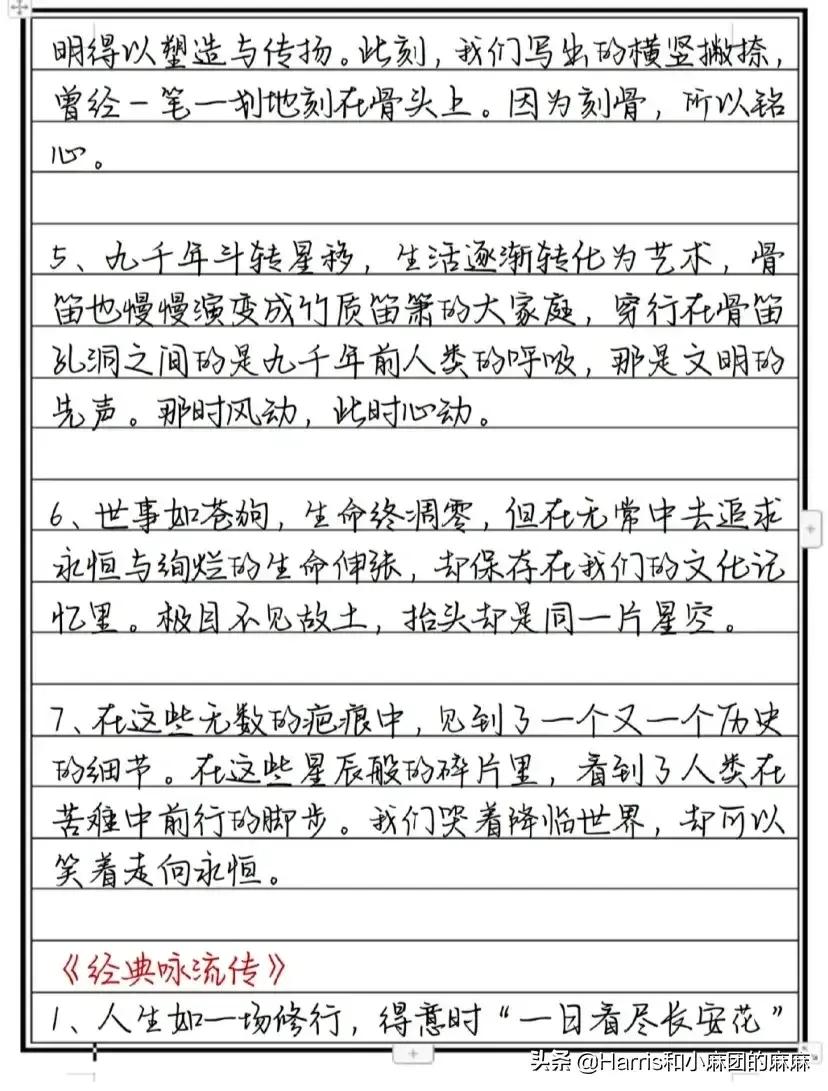 明得以塑造与传扬。此刻，我们写出的横竖撇捺，
曾经一笔一划地刻在骨头上。因为刻骨，所以铭
心。
5、九千年斗转星移，生活逐渐转化为艺术，骨
笛也慢慢演变成竹质笛箫的大家庭，穿行在骨笛
孔洞之间的是九千年前人类的呼吸，那是文明的
先声。那时风动，此时心动。
6、世事如苍狗，生命终凋零，但在无常中去追求
永恒与绚烂的生命伸张，却保存在我们的文化记
忆里。极目不见故土，抬头却是同一片星空。
7、在这些无数的疤痕中，见到了一个又一个历史
的细节。在这些星辰般的碎片里，看到了人类在
苦难中前行的脚步。我们哭着降临世界，却可以
笑着走向永恒。
《经典咏流传》
1、人生如一场修行，得意时“一日看尽长安花”
头条 @Harris和小麻团的麻麻